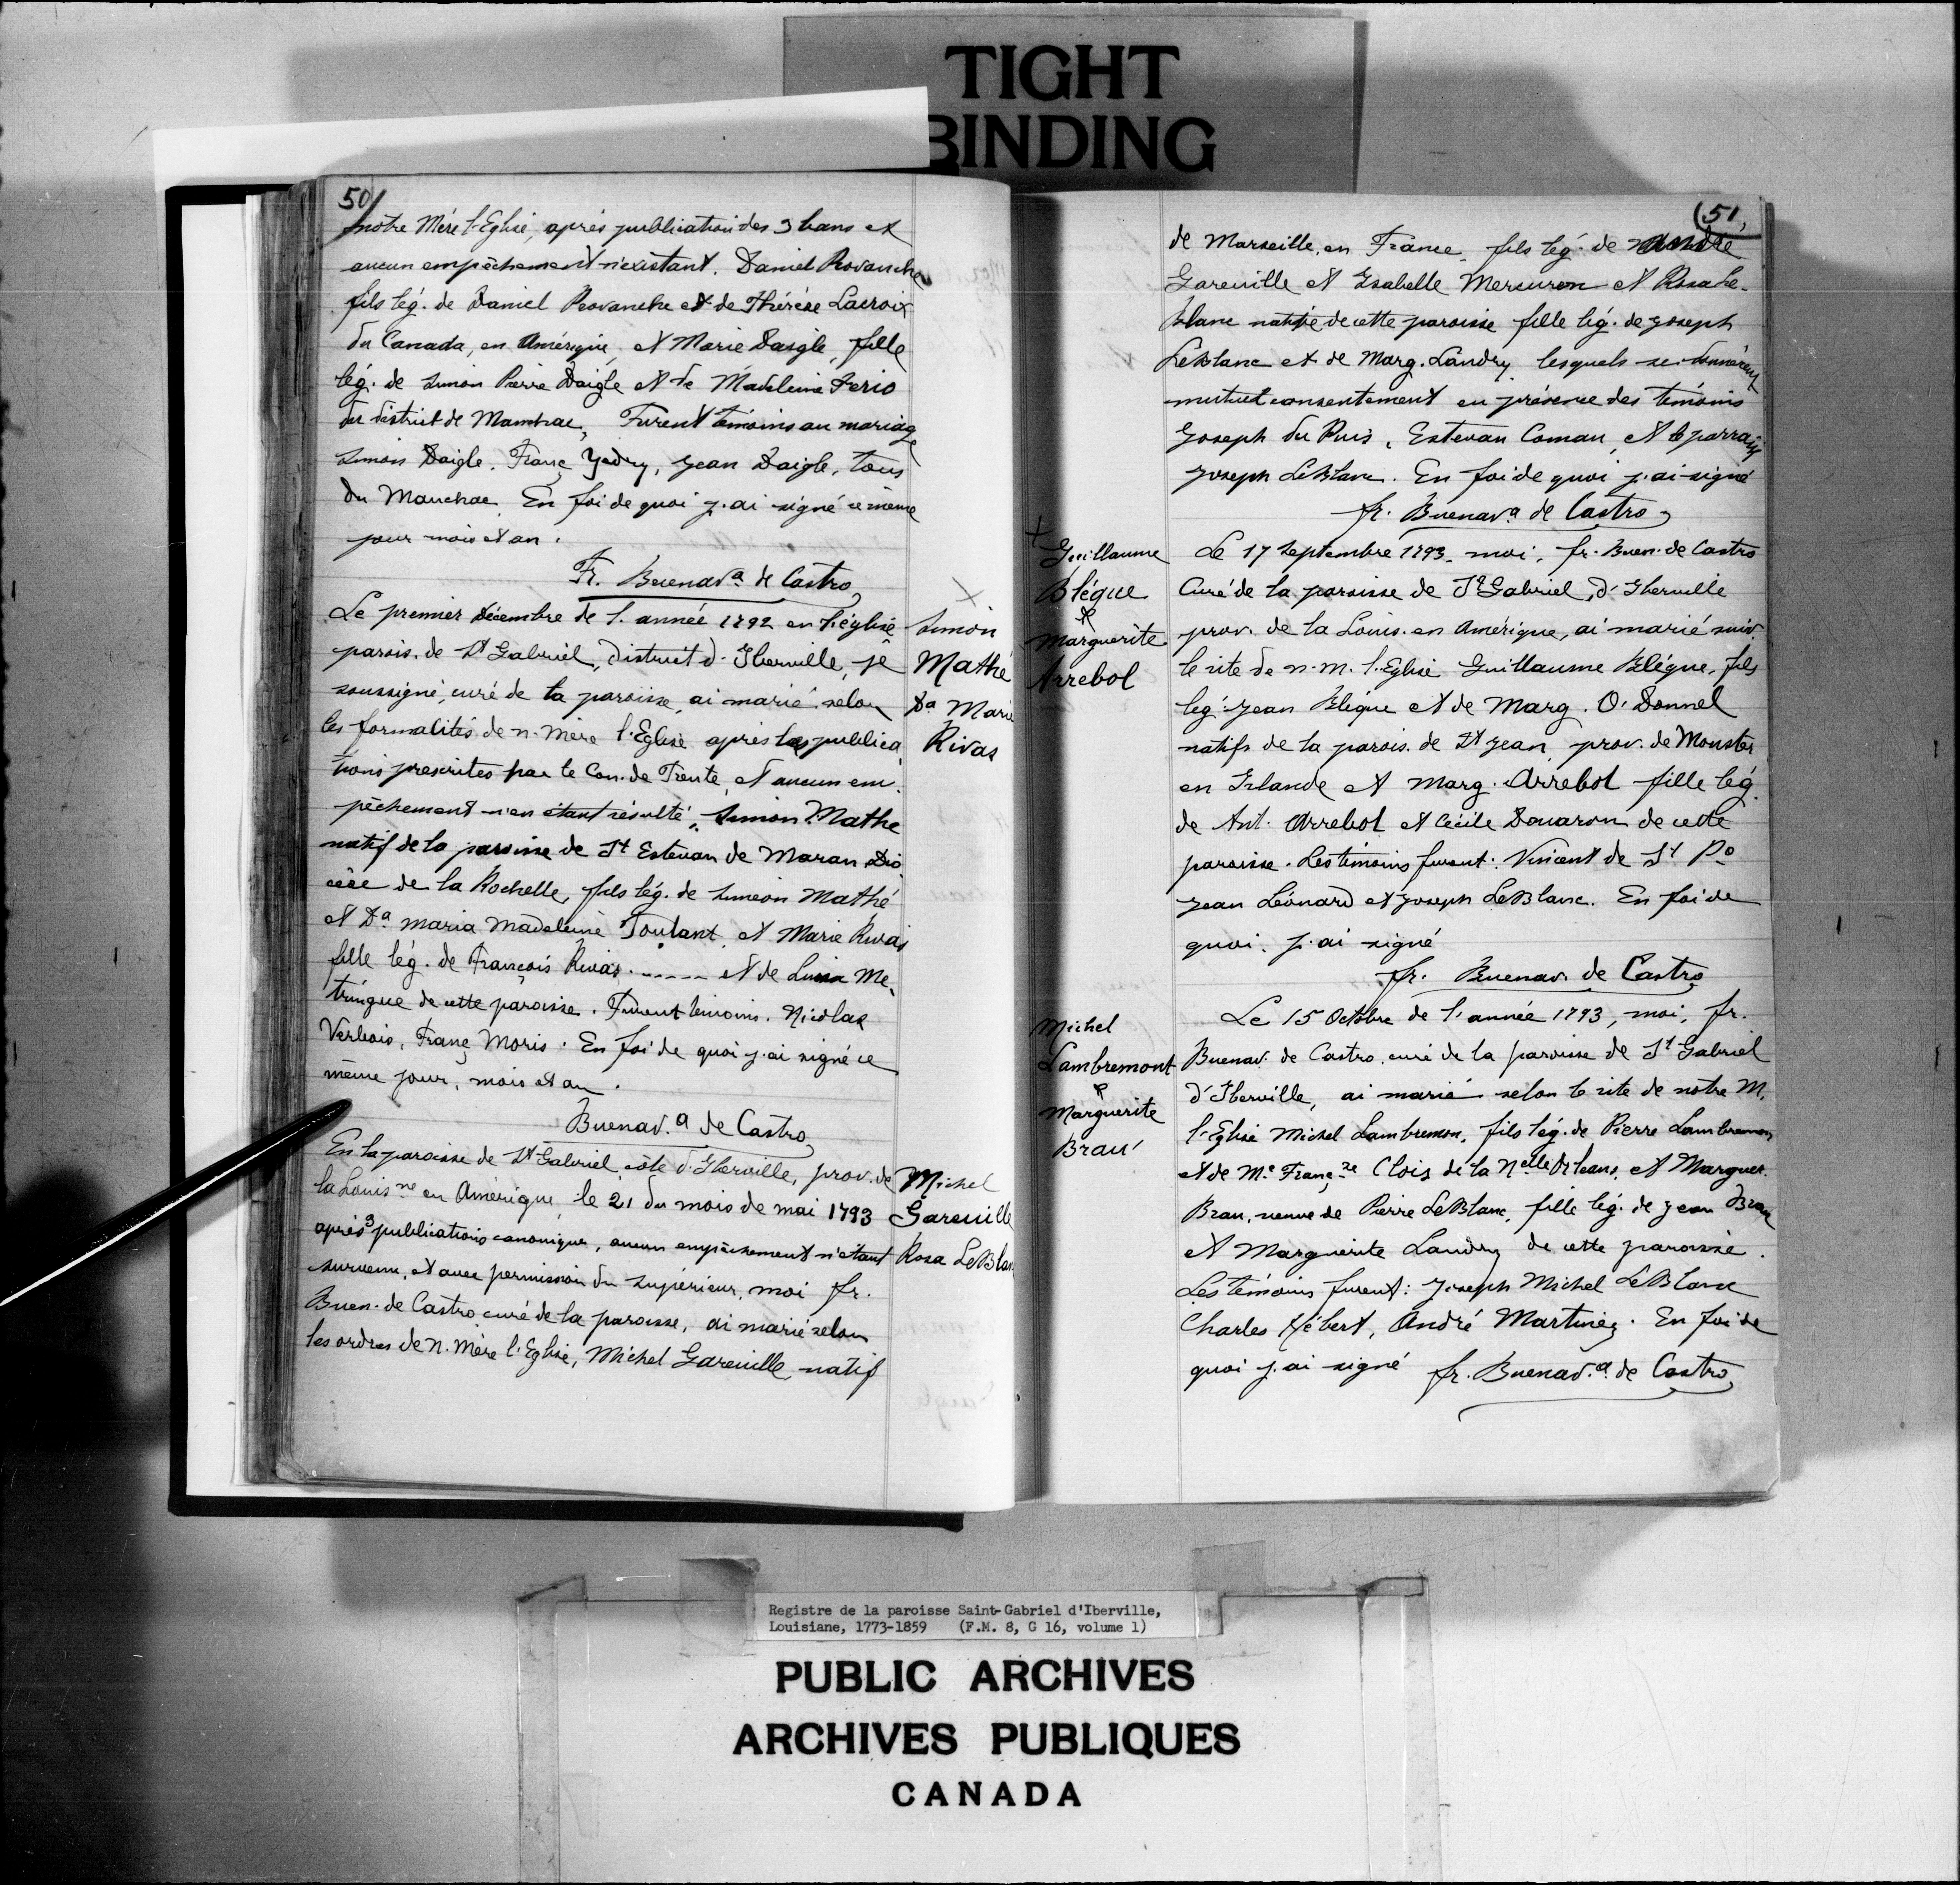 TIGHT
BINDING
50
notre Mère l'Eglise, après publication des 3 bans et
aucun empêchement n'existant. Daniel Provanche
fils lég. de Daniel Provanche et de Thérèse Lacroix
du Canada, en Amérique, et Marie Daigle, fille
lég. de Simon Pierre Daigle et de Madeleine Terio
du district de Manchac, Furent témoins au mariage
Simon Daigle, Franç Yedry, Jean Daigle, tous
du Manchac. En foi de quoi j'ai signé ce même
jour mois et an.
Fr. Buenavª de Castro
Le premier Décembre de l'année 1792 en l'église
parois. de St Gabriel, district d'Iberville, je
soussigné, curé de la paroisse, ai marié selon
les formalités de n. mère l'Eglise après les publica
tions prescrites par le Con. de Trente, et aucun em
pêchement n'en étant résulté, Simon Mathe
natif de la paroisse de St Estevan de Maran Dio
cèse de la Rochelle, fils lég. de Simeon Mathé
et Dª Maria Madeleine Toutant, et Marie Rivas
fille lég. de François Rivas ..... et de Luisa Me
tringue de cette paroisse. Furent témoins. Nicolas
Verbois, Franç Moris. En foi de quoi j'ai signé ce
même jour, mois et an.
Buenav.ª de Castro
Simon
Mathé
Dª Marie
Rivas
En la paroisse de St Gabriel côte d'Iberville, prov. de
la Louisne en Amérique, le 21 du mois de mai 1793
après 3 publications canonique, aucun empêchement n'étant
survenu, et avec permission du Supérieur, moi fr.
Buen. de Castro curé de la paroisse, ai marié selon
les ordres de N. Mère l'Eglise, Michel Gareuille natif
Michel
Gareuille
Rosa LeBlan
(51,
de Marseille, en France, fils lég. de André
Gareuille et Isabelle Mercuron et Rosa Le-
Blanc native de cette paroisse fille lég. de Joseph
LeBlanc et de Marg. Landry lesquels se donnèrent
mutuel consentement en présence des témoins
Joseph du Puis, Estevan Coman, et le parrain
Joseph LeBlanc. En foi de quoi j'ai signé
fr. Buenavª de Castro
Guillaume
Blégue
&
Marguerite
Arrebol
Le 17 Septembre 1793, moi, fr. Buen. de Castro
Curé de la paroisse de St Gabriel, d'Iberville
prov. de la Louis. en Amérique, ai marié suiv.
le rite de n. m. l'Eglise Guillaume Blégue, fils
lég. Jean Blégue et de Marg. O'Donnel
natifs de la parois. de St Jean, prov. de Monster
en Irlande et Marg. Arrebol fille lég.
de Ant. Arrebol et Cécile Davaron de cette
paroisse. Les témoins furent: Vincent de St Po
Jean Léonard et Joseph LeBlanc. En foi de
quoi, j'ai signé
fr. Buenav. de Castro
Michel
Lambremont
&
Marguerite
Brau
Le 15 Octobre de l'année 1793, moi, fr.
Buenav. de Castro, curé de la paroisse de St Gabriel
d'Iberville, ai marié selon le rite de notre M.
l'Eglise Michel Lambremon, fils lég. de Pierre Lambremon
et de Me Franç.se Clois de la Nelle Orleans, et Marguer.
Brau, veuve de Pierre LeBlanc, fille lég. de Jean Brau
et Marguerite Landry de cette paroisse.
Les témoins furent: Joseph Michel LeBlanc
Charles Hébert, André Martinez. En foi de
quoi j'ai signé fr. Buenav.ª de Castro
Registre de la paroisse Saint-Gabriel d'Iberville,
Louisiane, 1773-1859 (F.M. 8, G 16, volume 1)
PUBLIC ARCHIVES
ARCHIVES PUBLIQUES
CANADA